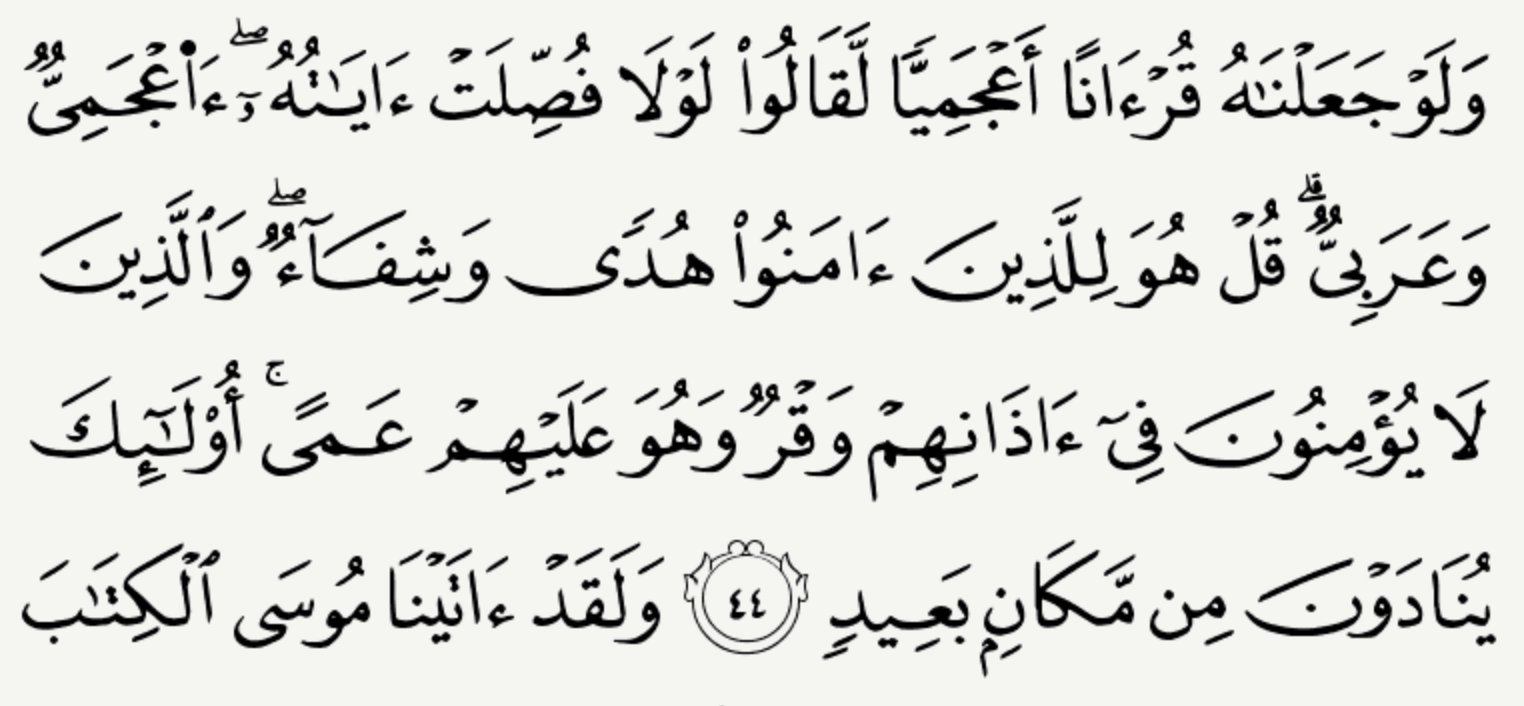 وَلَوْ جَعَلْنَٰهُ قُرْءَانًا أَعْجَمِيًّا لَّقَالُوا۟ لَوْلَا فُصِّلَتْ ءَايَٰتُهُۥٓ ۖ ءَا۬عْجَمِىٌّ
وَعَرَبِىٌّ ۗ قُلْ هُوَ لِلَّذِينَ ءَامَنُوا۟ هُدًى وَشِفَآءٌ ۖ وَٱلَّذِينَ
لَا يُؤْمِنُونَ فِىٓ ءَاذَانِهِمْ وَقْرٌ وَهُوَ عَلَيْهِمْ عَمًى ۚ أُو۟لَٰٓئِكَ
يُنَادَوْنَ مِن مَّكَانٍۭ بَعِيدٍ ٤٤ وَلَقَدْ ءَاتَيْنَا مُوسَى ٱلْكِتَٰبَ